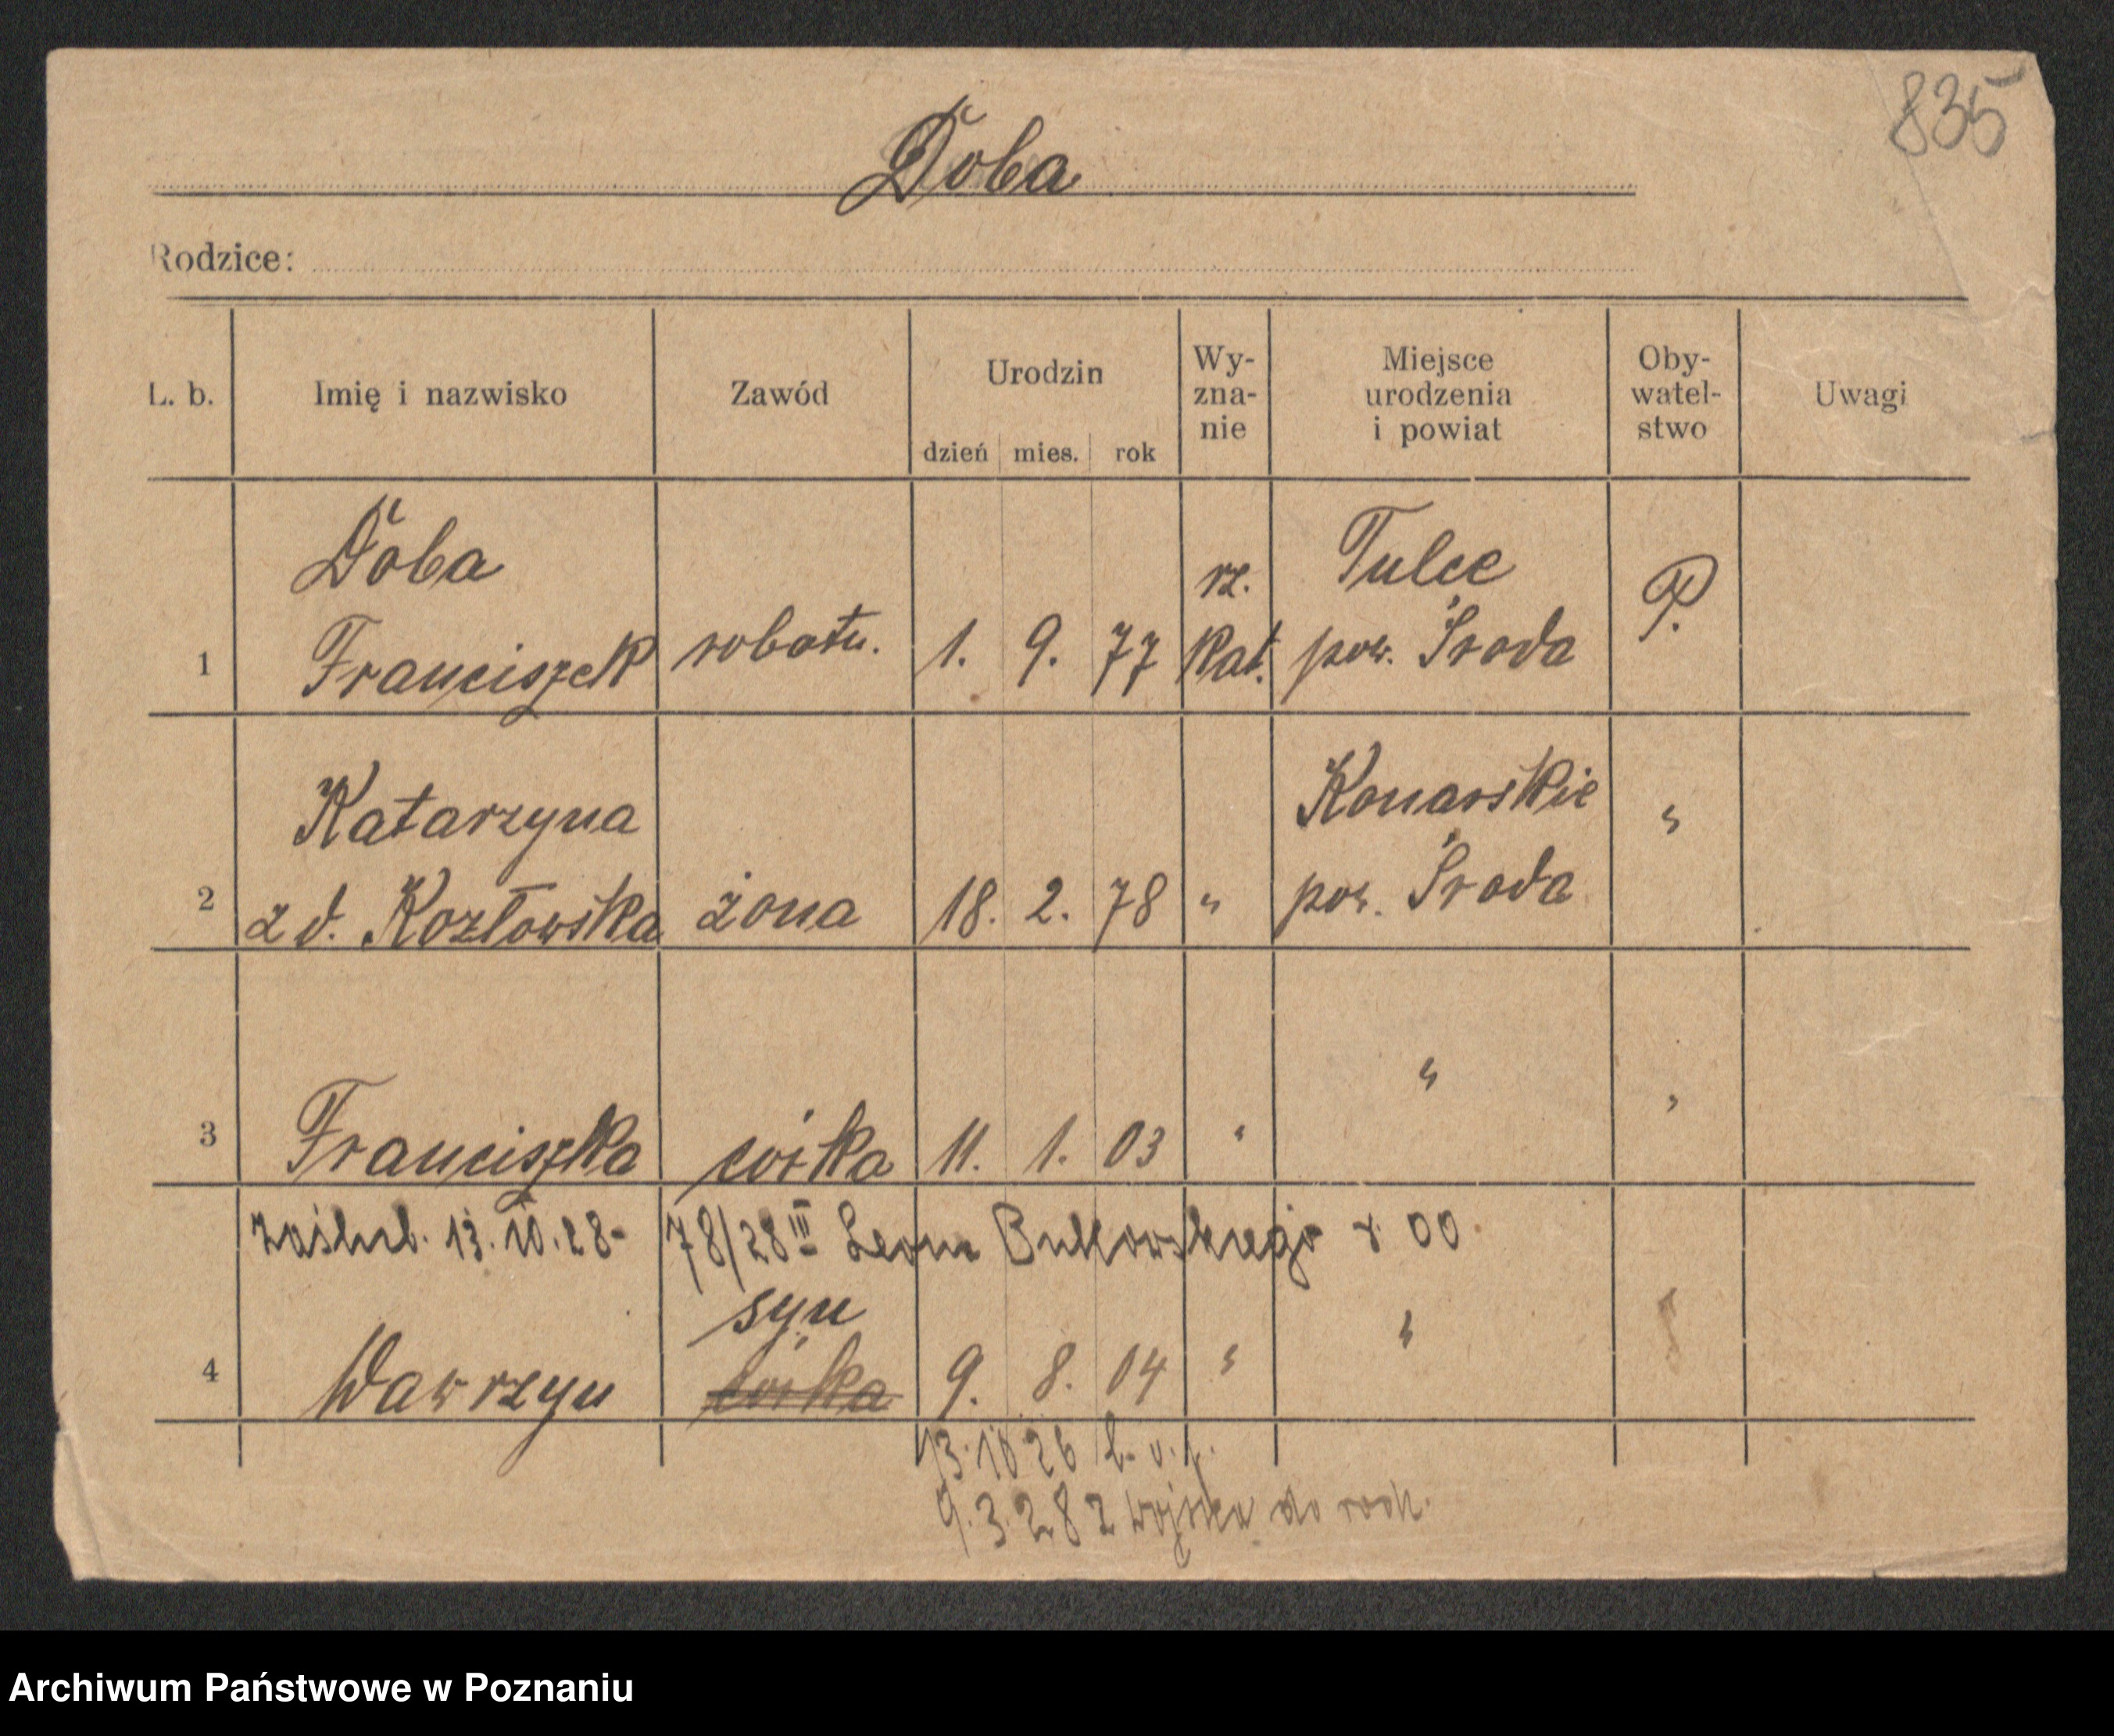 835
Doba
Rodzice:
L. b.
Imię i nazwisko
Zawód
Urodzin
dzień mies. rok
Wy-
zna-
nie
Miejsce
urodzenia
i powiat
Oby-
watel-
stwo
Uwagi
1
Doba
Franciszek
robotn.
1. 9. 77
rz.
kat.
Tulce
pow. Środa
P.
2
Katarzyna
z d. Kozłowska
żona
18. 2. 78
"
Konarskie
pow. Środa
"
3
Franciszka
córka
11. 1. 03
"
"
"
zaślub. 13.10.28- 78/28 III Leon Bułkowskiego * 00
4
Wawrzyn
syn
córka
9. 8. 04
"
"
"
13.10 26
9.3.28 z wojska do rodz.
Archiwum Państwowe w Poznaniu